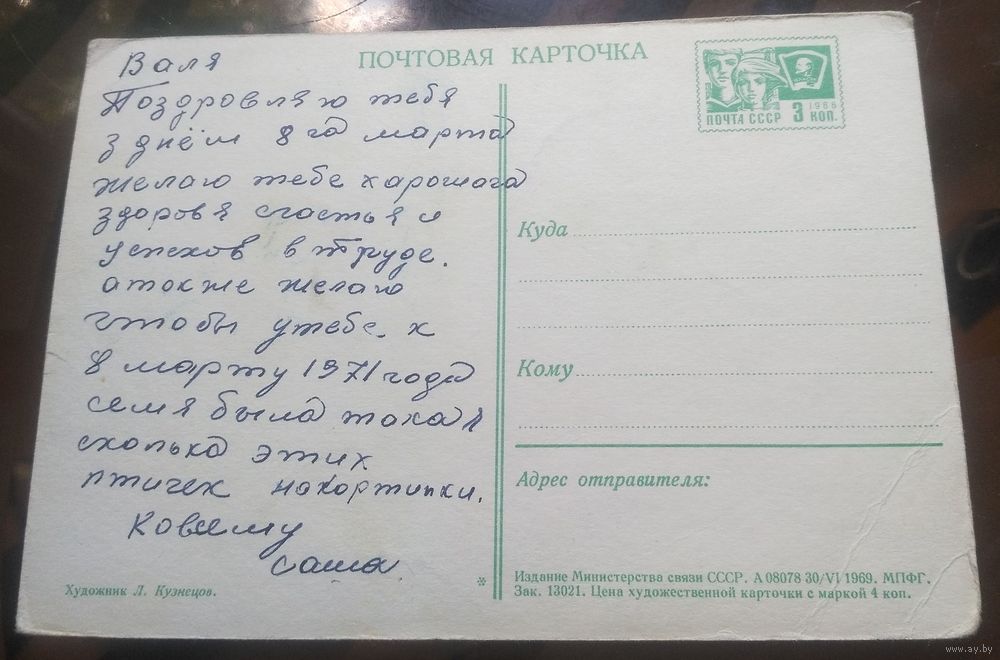 ПОЧТОВАЯ КАРТОЧКА
Валя
Поздровляю тебя
з днём 8 го марта
желаю тебе харошага
здоровя счастья и
успехов в труде.
а токже желаю
чтобы утебе к
8 марту 1971 года
семя была токая
сколька этих
птичек накортинки.
Саша
Художник Л. Кузнецов.
1966
ПОЧТА СССР 3 КОП.
Куда
Кому
Адрес отправителя:
* Издание Министерства связи СССР. А 08078 30/VI 1969. МПФГ.
Зак. 13021. Цена художественной карточки с маркой 4 коп.
www.ay.by